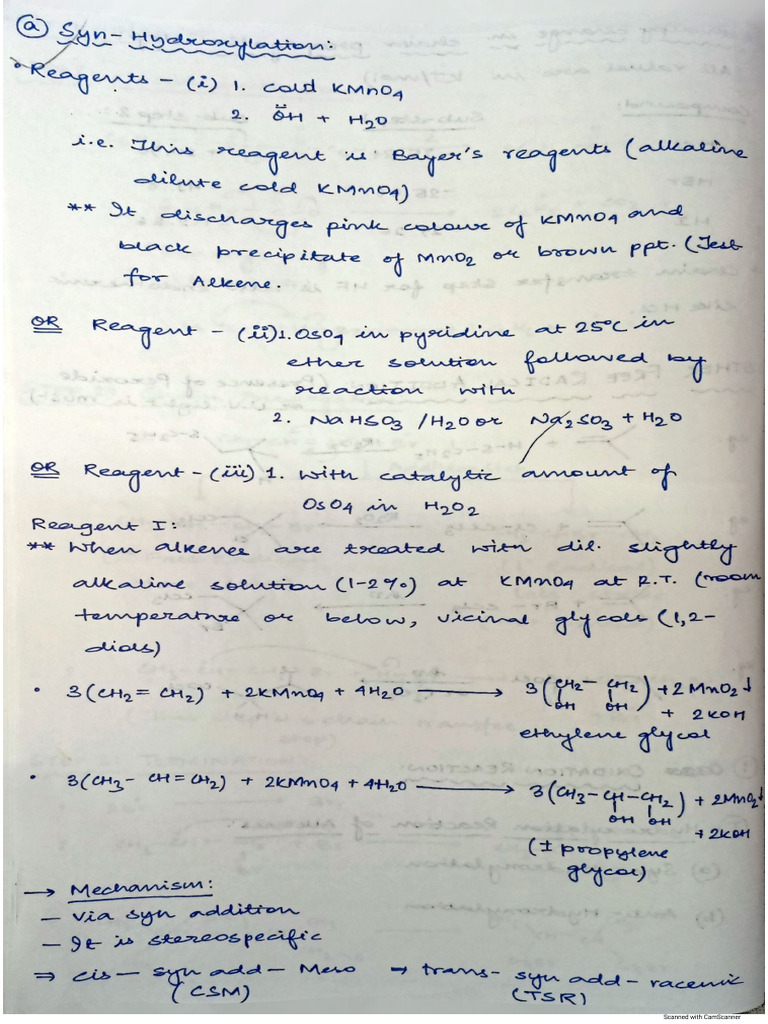 (a) Syn-Hydroxylation:
• Reagents - (i) 1. cold KMnO4
2. ÖH + H2O
i.e. This reagent is Bayer's reagents (alkaline
dilute cold KMnO4)
** It discharges pink colour of KMnO4 and
black precipitate of MnO2 or brown ppt. (Test
for Alkene.
OR Reagent - (ii) 1. OsO4 in pyridine at 25°C in
ether solution followed by
reaction with
2. NaHSO3 /H2O or Na2SO3 + H2O
OR Reagent - (iii) 1. with catalytic amount of
OsO4 in H2O2
Reagent I:
** When alkenes are treated with dil. slightly
alkaline solution (1-2%) at KMnO4 at R.T. (room
temperature or below, vicinal glycols (1,2-
diols)
• 3(CH2=CH2) + 2KMnO4 + 4H2O ⟶ 3(CH2-CH2) + 2MnO2↓
OH OH + 2KOH
ethylene glycol
• 3(CH3-CH=CH2) + 2KMnO4 + 4H2O ⟶ 3(CH3-CH-CH2) + 2MnO2↓
OH OH + 2KOH
(± propylene
glycol)
→ Mechanism:
- via syn addition
- It is stereospecific
⇒ cis - syn add - Meso → trans - syn add - racemic
(CSM) (TSR)
Scanned with CamScanner